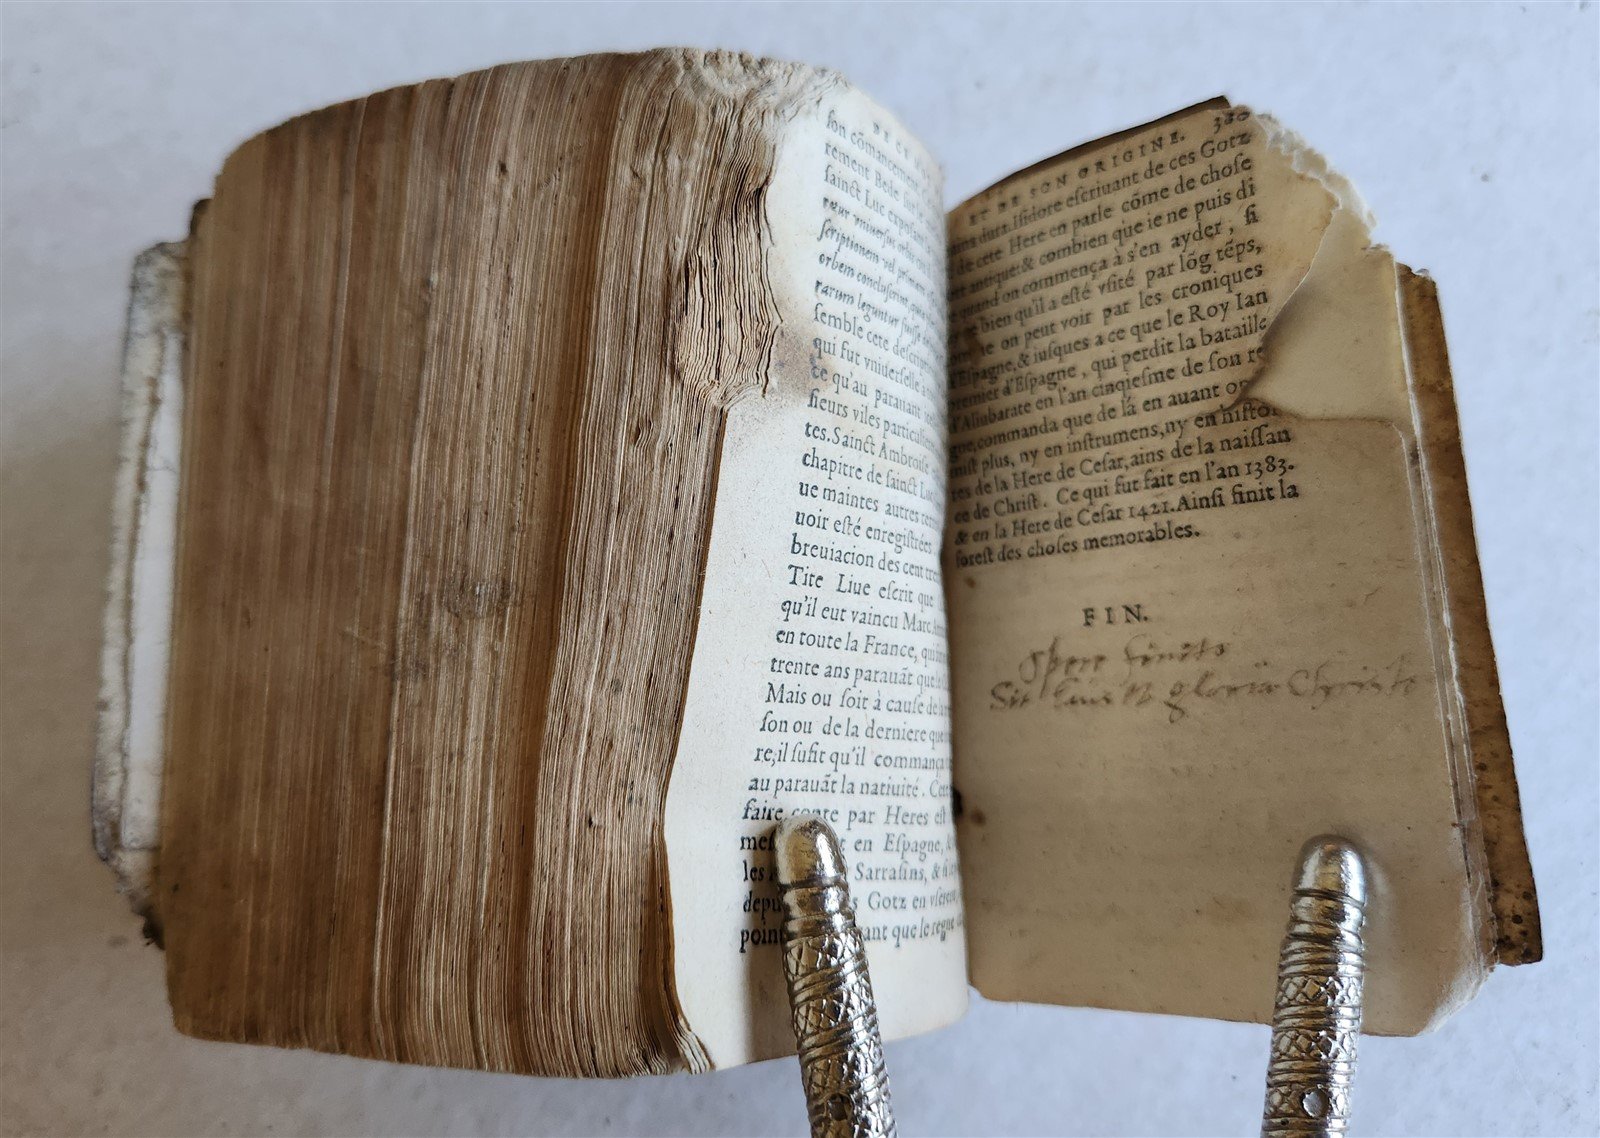 DE CE M
son cõmancement
rement Bede sur le
sainct Luc exposant
rœur vniuersus orbis
scriptionem vel primam esse
orbem concluserint, quia
rarum leguntur fuisse
semble cete descrip
qui fut vniuerselle a
ce qu'au parauant
sieurs viles particulieres
tes. Sainct Ambroise
chapitre de sainct Luc
ue maintes autres terres
uoir esté enregistrées
breuiacion des cent tren
Tite Liue escrit que
qu'il eut vaincu Marc An
en toute la France, qui
trente ans parauãt que
Mais ou soit à cause de la
son ou de la derniere que
re, il sufit qu'il commança
au parauãt la natiuité. Cete
faire conte par Heres est
en Espagne,
les Sarrasins, &
depu s Gotz en vserent
point ant que le regne
ET DE SON ORIGINE. 380
ains dura. Isidore escriuant de ces Gotz
de cete Here en parle cõme de chose
antique: & combien que ie ne puis di
quand on commença à s'en ayder, si
bien qu'il a esté vsité par lõg tẽps,
on peut voir par les croniques
d'Espagne, & iusques a ce que le Roy Ian
premier d'Espagne, qui perdit la bataille
d'Aliubarate en l'an cinqiesme de son re
gne, commanda que de là en auant on
mist plus, ny en instrumens, ny en histoi
res de la Here de Cesar, ains de la naissan
ce de Christ. Ce qui fut fait en l'an 1383.
& en la Here de Cesar 1421. Ainsi finit la
forest des choses memorables.
FIN.
Opere finito
Sit laus & gloria Christo